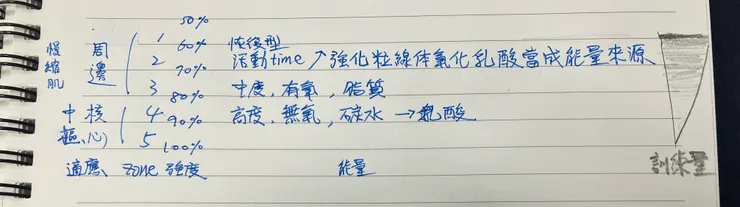 50%
1 恢復型
60%
慢縮肌 周邊 2 活動time↗強化粒線体氧化乳酸當成能量來源
70%
3 中度、有氧,脂質
80%
中樞 核心 4 高度、無氧,碳水→乳酸
90%
5
100%
適應、zone 強度 能量 訓練量